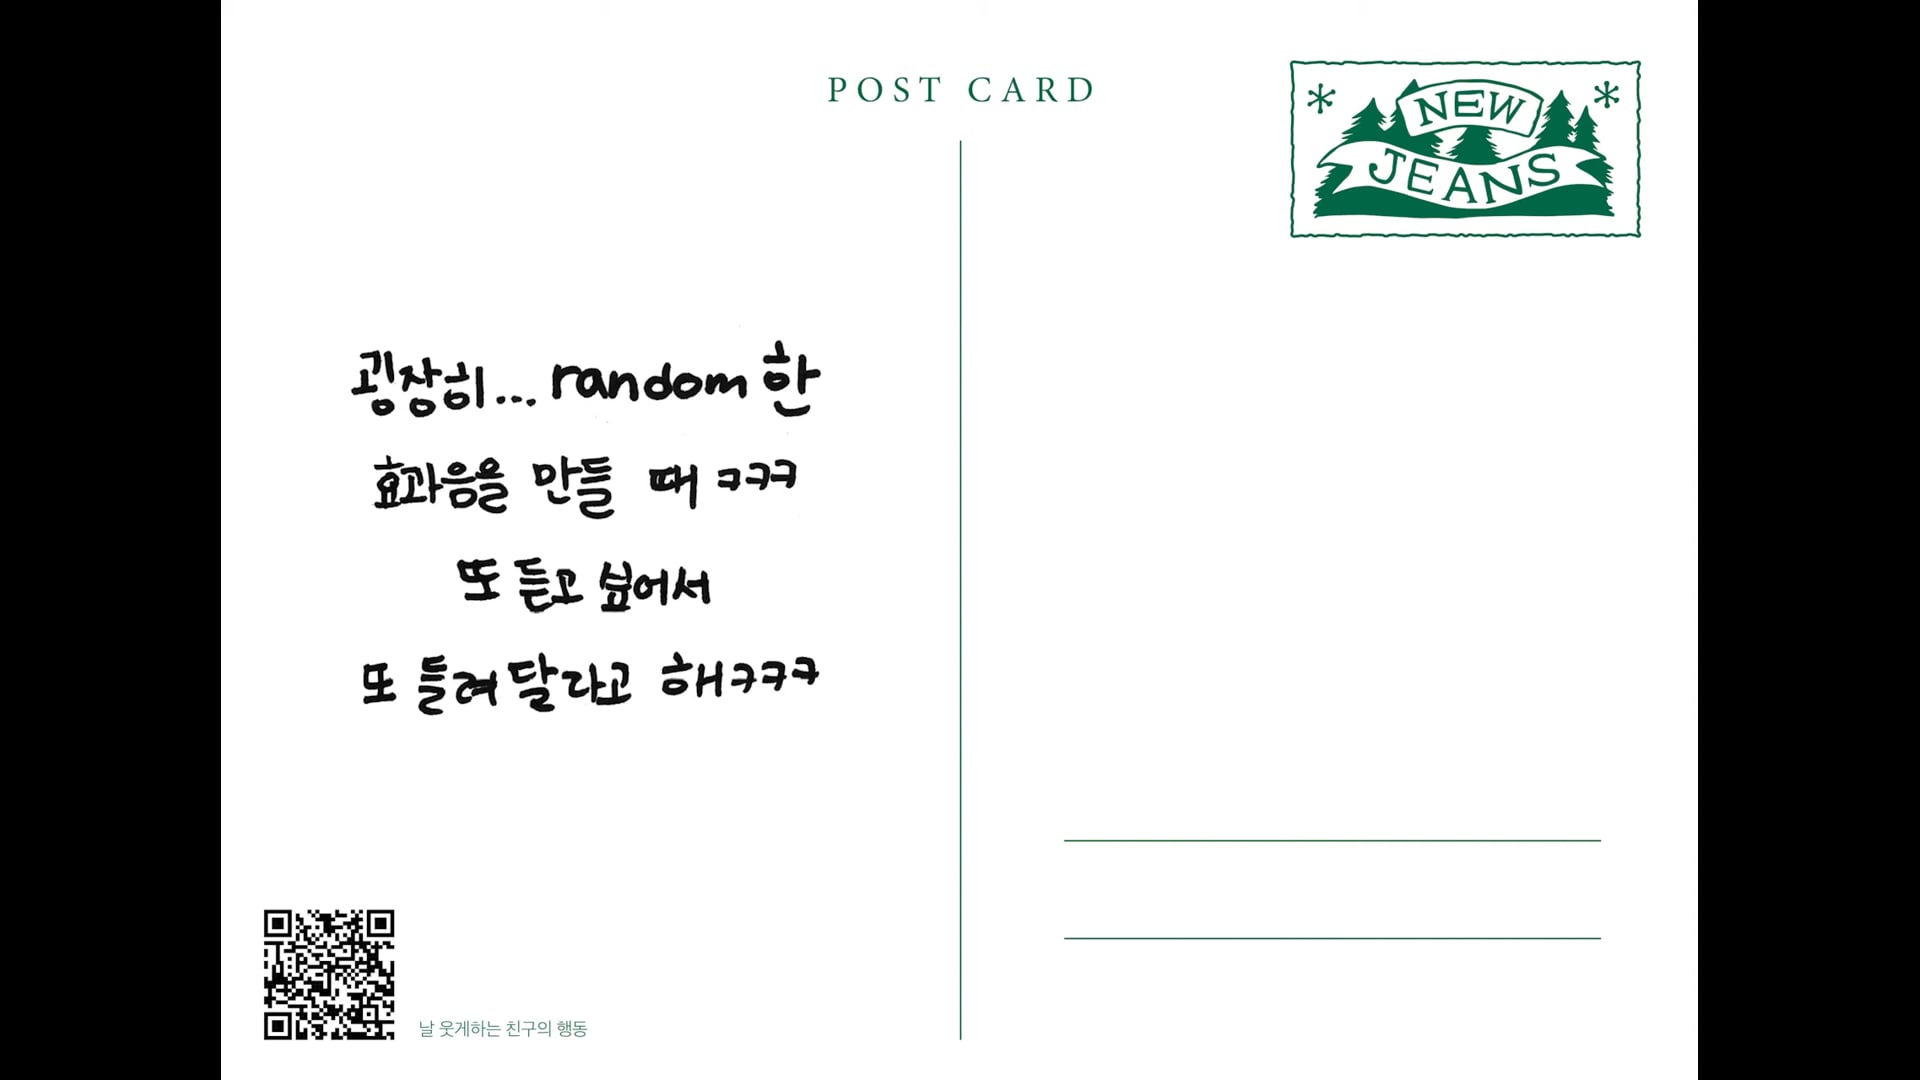 POST CARD
NEW
JEANS
굉장히... random 한
효과음을 만들 때 ㅋㅋㅋ
또 듣고 싶어서
또 들려 달라고 해ㅋㅋㅋ
날 웃게하는 친구의 행동